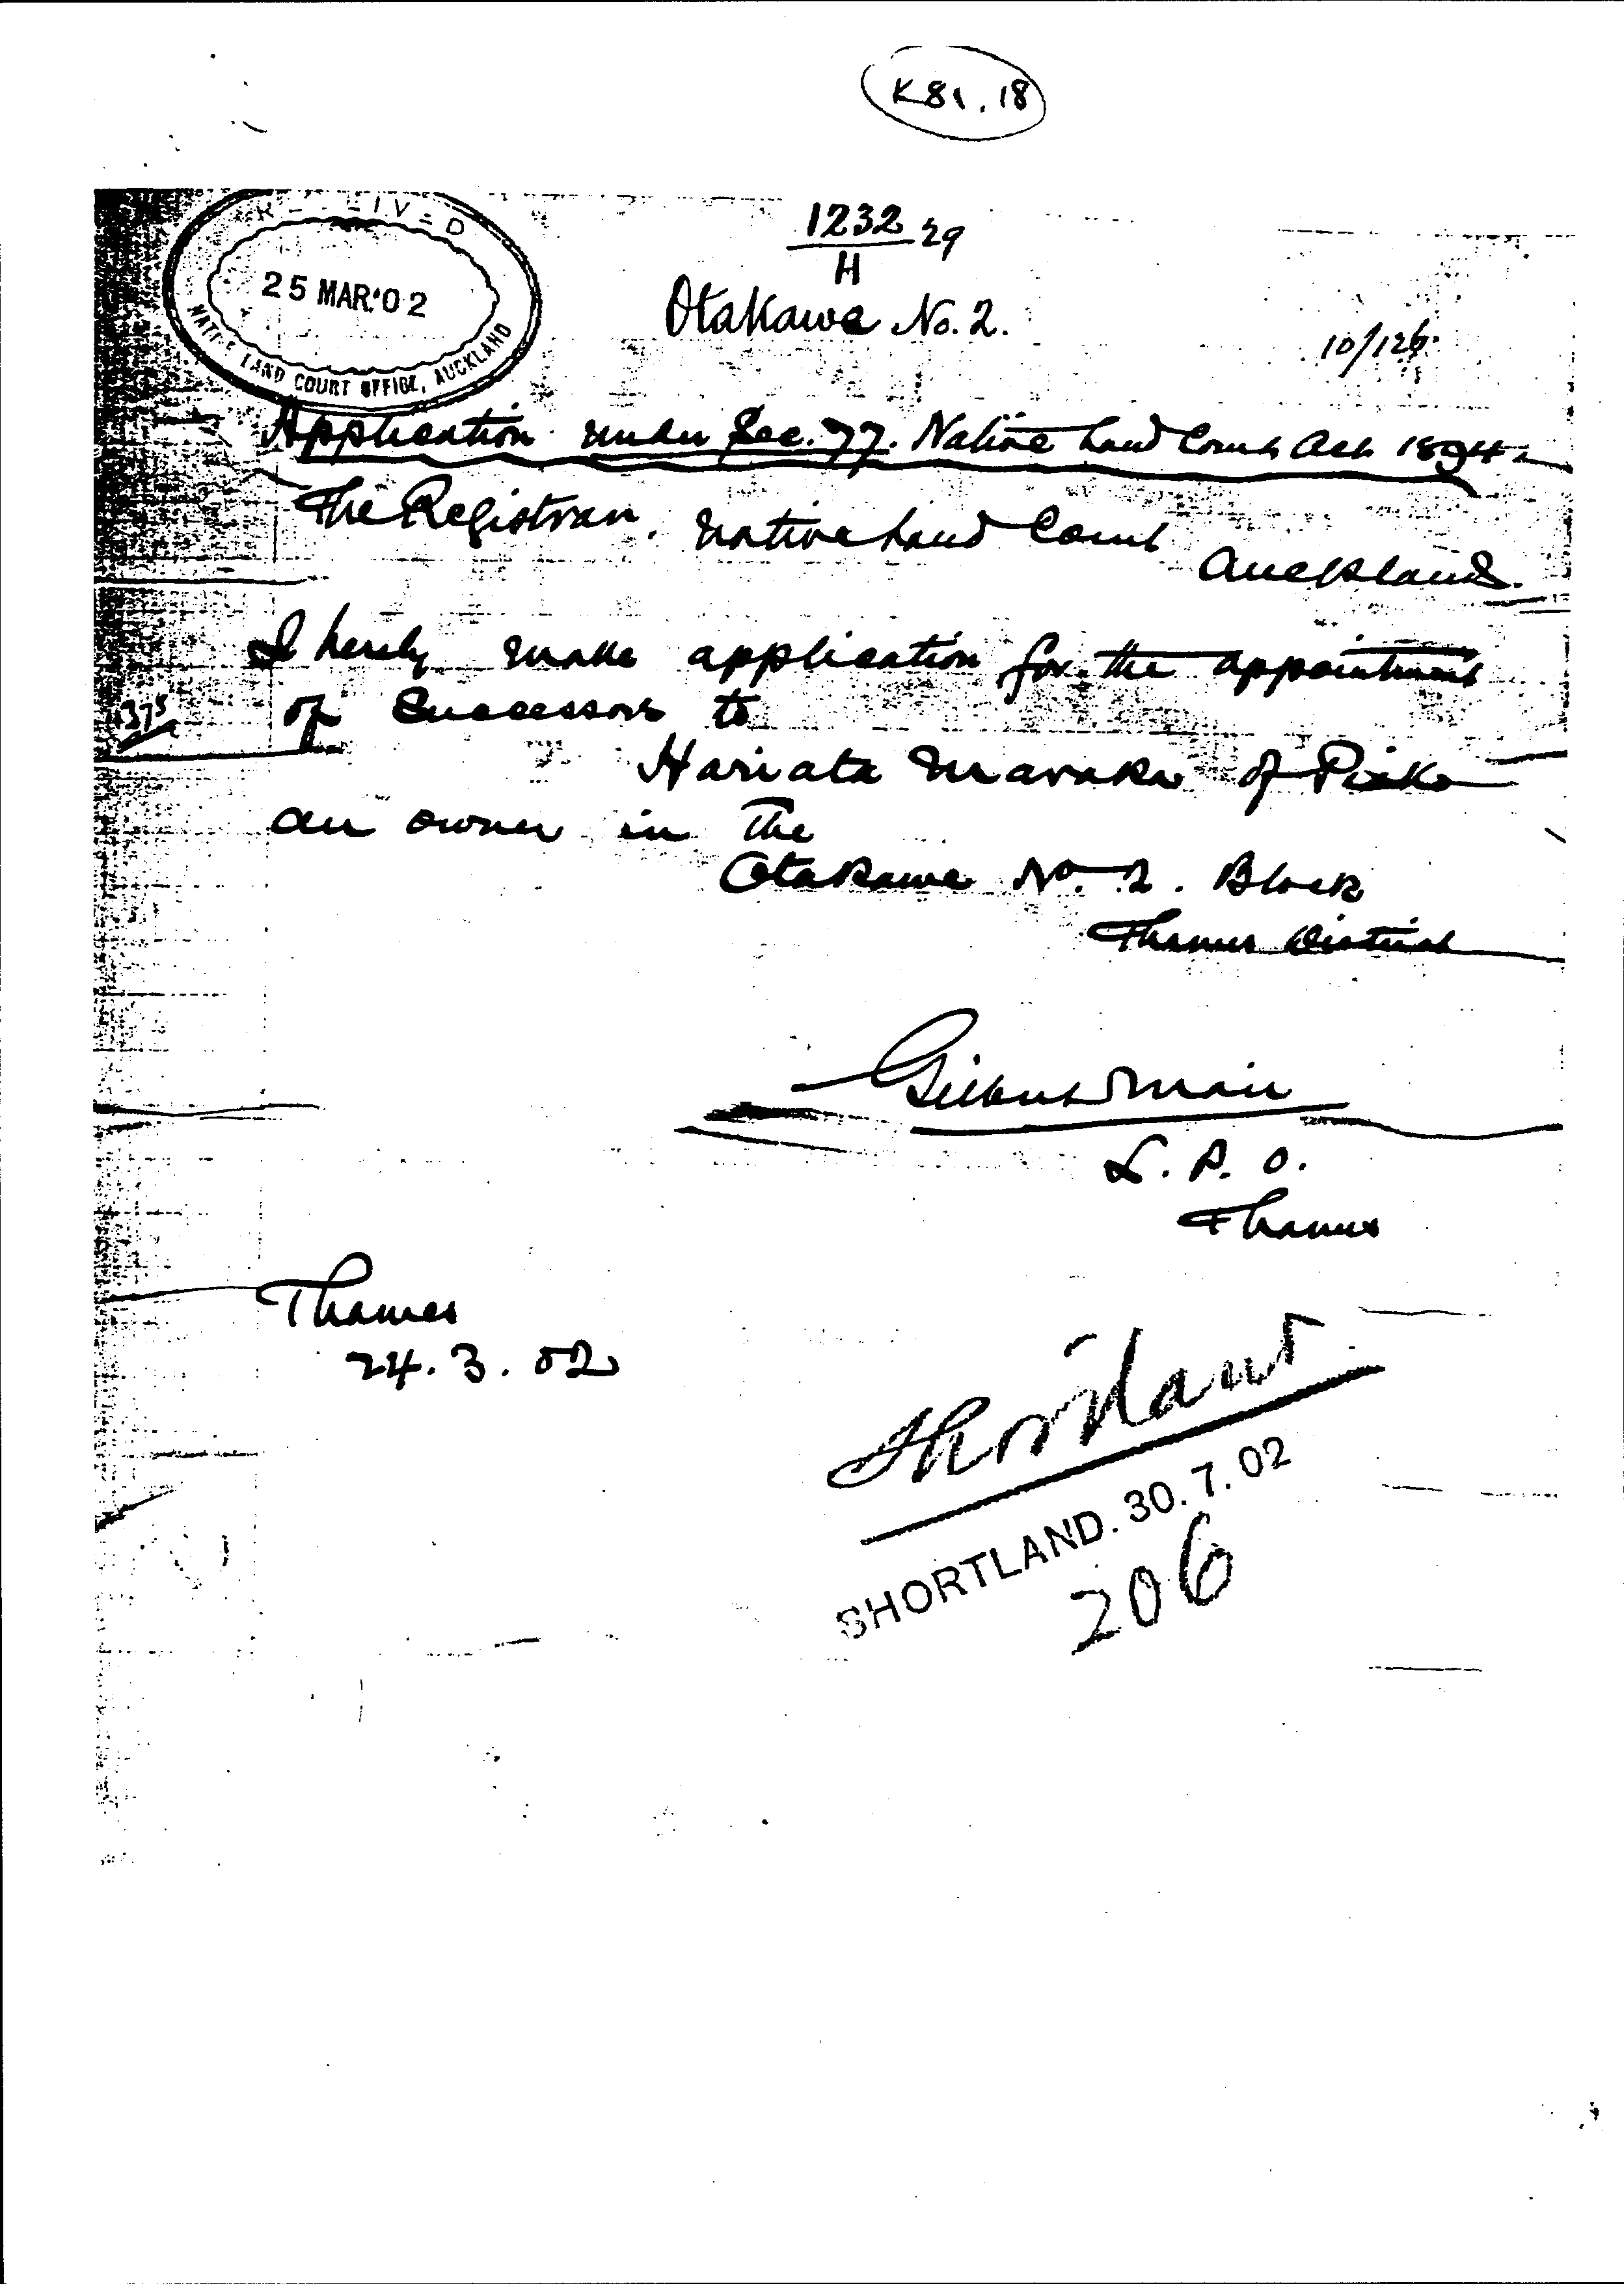 K81.18
RECEIVED
25 MAR.'02
NATIVE LAND COURT OFFICE, AUCKLAND
1232 29
H
Otakawe No. 2.
10/126
Application under Sec. 77. Native Land Court Act 1894
The Registrar. Native Land Court
Auckland.
I hereby make application for the appointment
of Successors to
375
Hariata Maraka of Piako
an owner in the
Otakawe No. 2. Block
Thames District
Gilbert Mair
L. P. O.
Thames
Thames
24.3.02
Shortland
SHORTLAND. 30.7.02
206